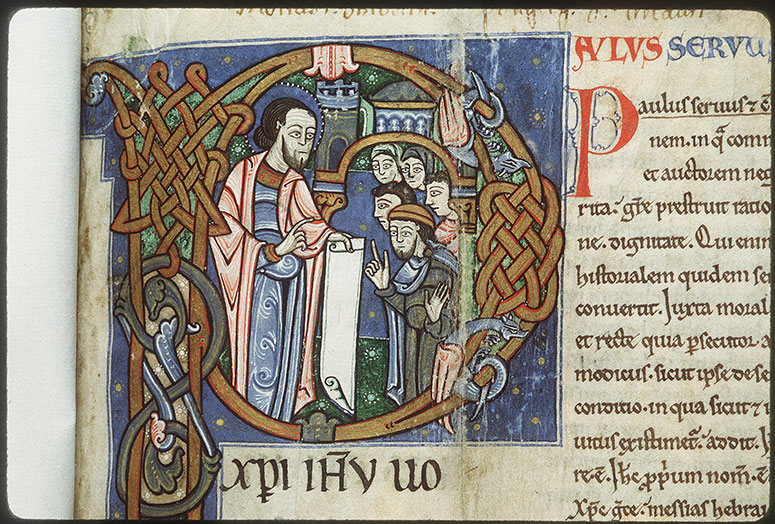 P
AULUS SERVU
xp̄i ih̄v uo
Paulus seruus ⁊ ē
nem. in q̄ com
et auctorem neg
rita. gr̄e prestruit ratio
ne. dignitate. Qui enim
historialem quidem se
conuertit. Iuxta moral
et recte quia ꝑsecutor a
modicus. sicut ip̄se de se
conditio. in qua sicut ⁊
uitus existimet̄. addit.
re.ē. Ih̄c ꝓp̄um nom̄.ē
Xp̄c gr̄ce. messias hebra